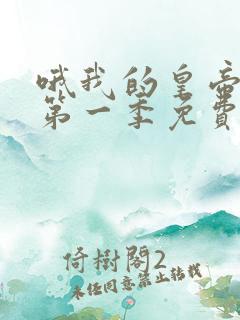 哦我的皇帝
第一季免費
倚樹閣2
未经同意禁止转载